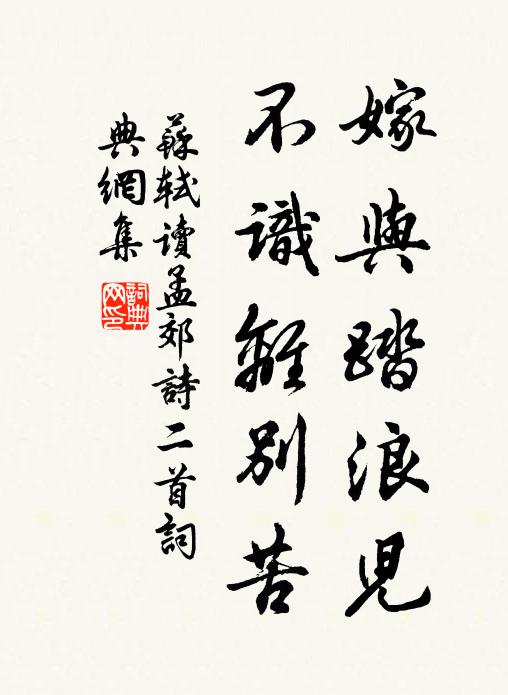 嫁與踏浪兒
不識離別苦
蘇軾讀孟郊詩二首詞
典網集
詞典
网印